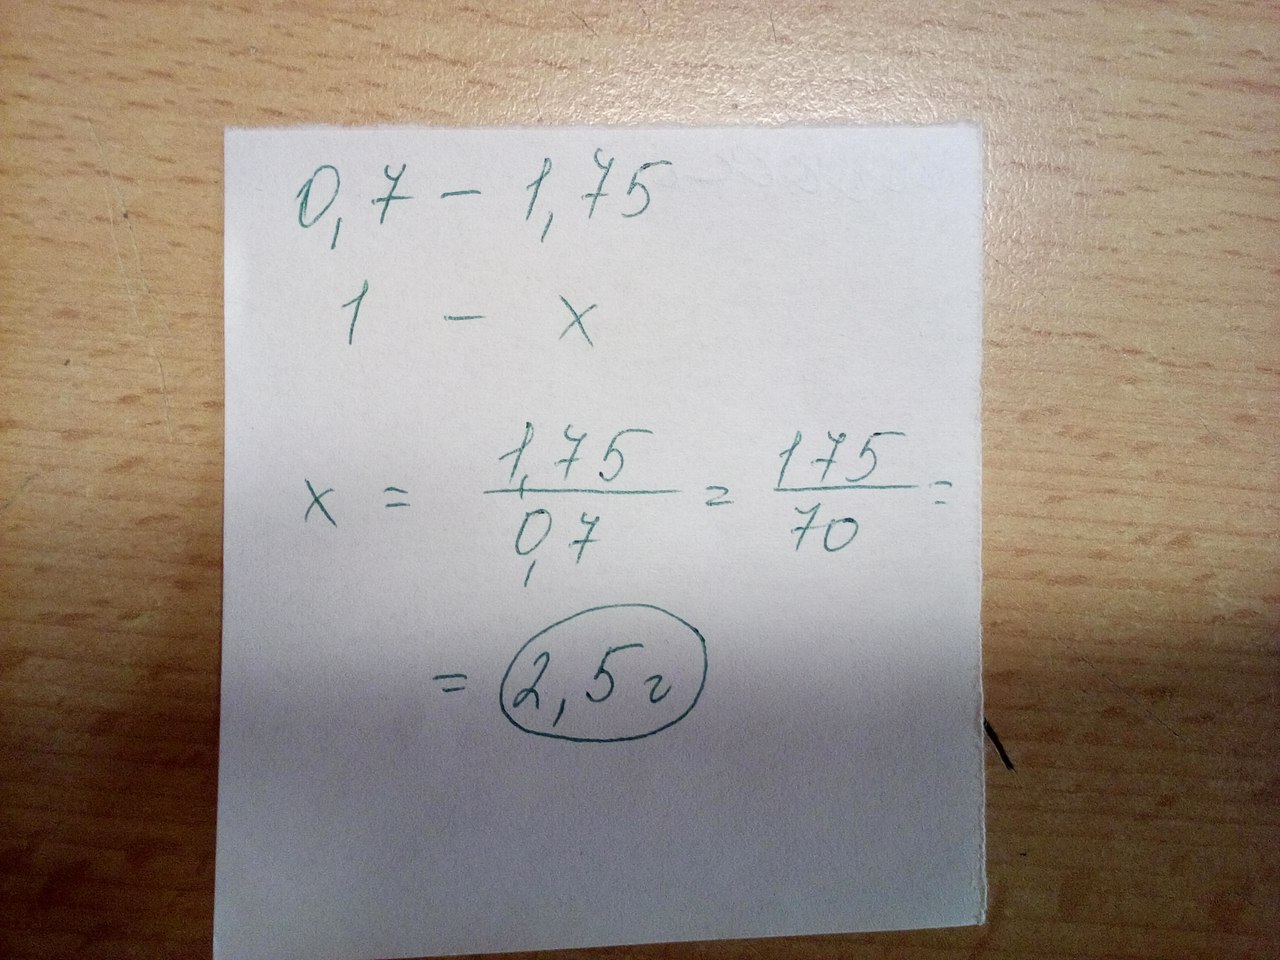 0,7 - 1,75
1 - x
x = 1,75/0,7 = 175/70 =
= 2,5 г